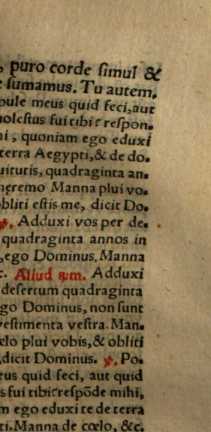 , puro corde simul &
sumamus. Tu autem.
pule meus quid feci, aut
molestus fui tibi? respon-
hi, quoniam ego eduxi
terra Aegypti, & de do-
uituris, quadraginta an-
heremo Manna plui vo-
bliti estis me, dicit Do-
℣. Adduxi vos per de-
quadraginta annos in
, ego Dominus. Manna
c. Aliud ℣m. Adduxi
desertum quadraginta
go Dominus, non sunt
vestimenta vestra. Man-
elo plui vobis, & obliti
, dicit Dominus. ℣. Po-
eus quid feci, aut quid
s fui tibi? respōde mihi,
m ego eduxi te de terra
ti. Manna de cœlo, &c.